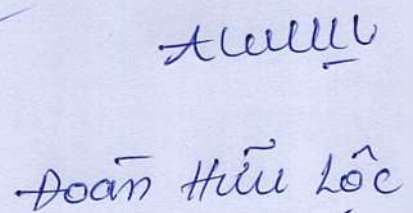 Đoàn Hữu Lộc